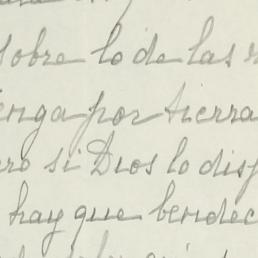 sobre lo de las
enga por tierra
ero si Dios lo disp
hay que bendec